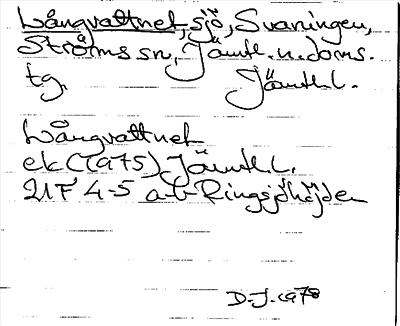 Långvattnet, sjö, Svaningen,
Ströms sn, Jämtl. n. doms.
tg. Jämtl.
Långvattnet
ek (1975) Jämtl.
21F 4-5 a-b Ringsjöhöjden
D.J. 1978